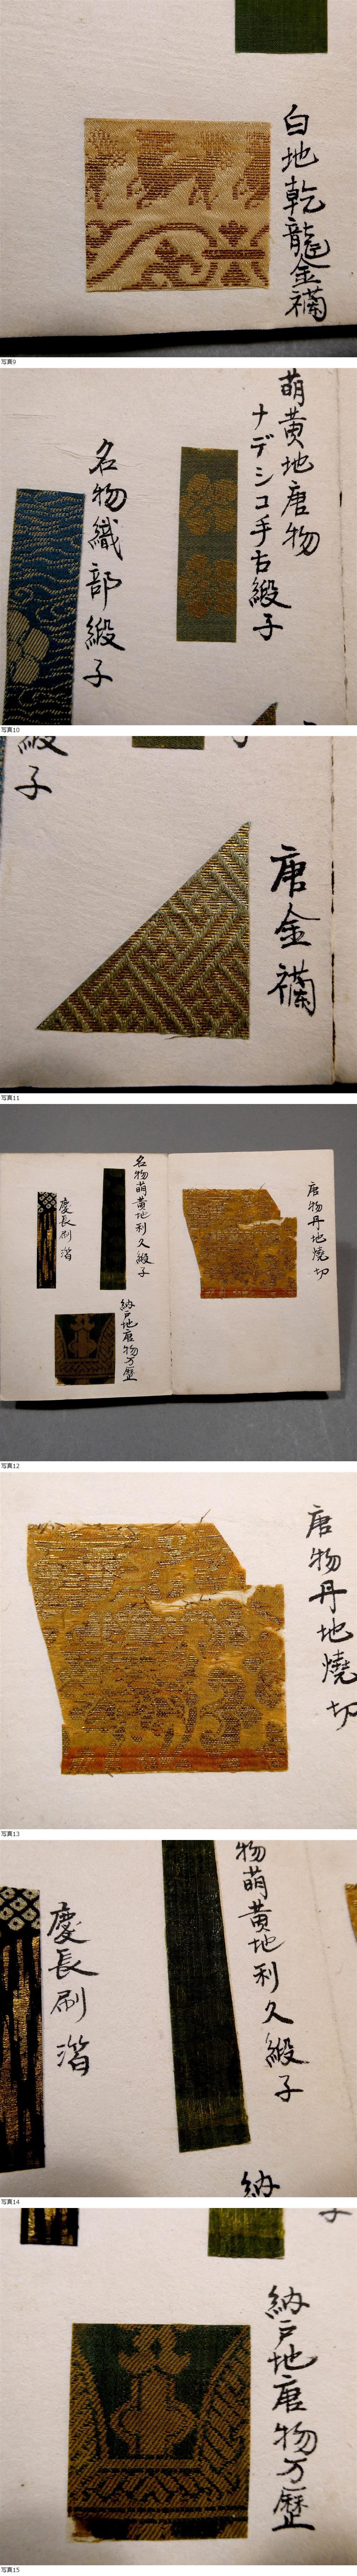 白地乾龍金襴
写真9
萌黄地唐物
ナデシコ手古緞子
名物織部緞子
写真10
緞子
唐金襴
写真11
唐物丹地焼切
名物萌黄地利久緞子
慶長刷箔
納戸地唐物万歴
写真12
唐物丹地焼切
写真13
物萌黄地利久緞子
慶長刷箔
納
写真14
納戸地唐物万歴
写真15